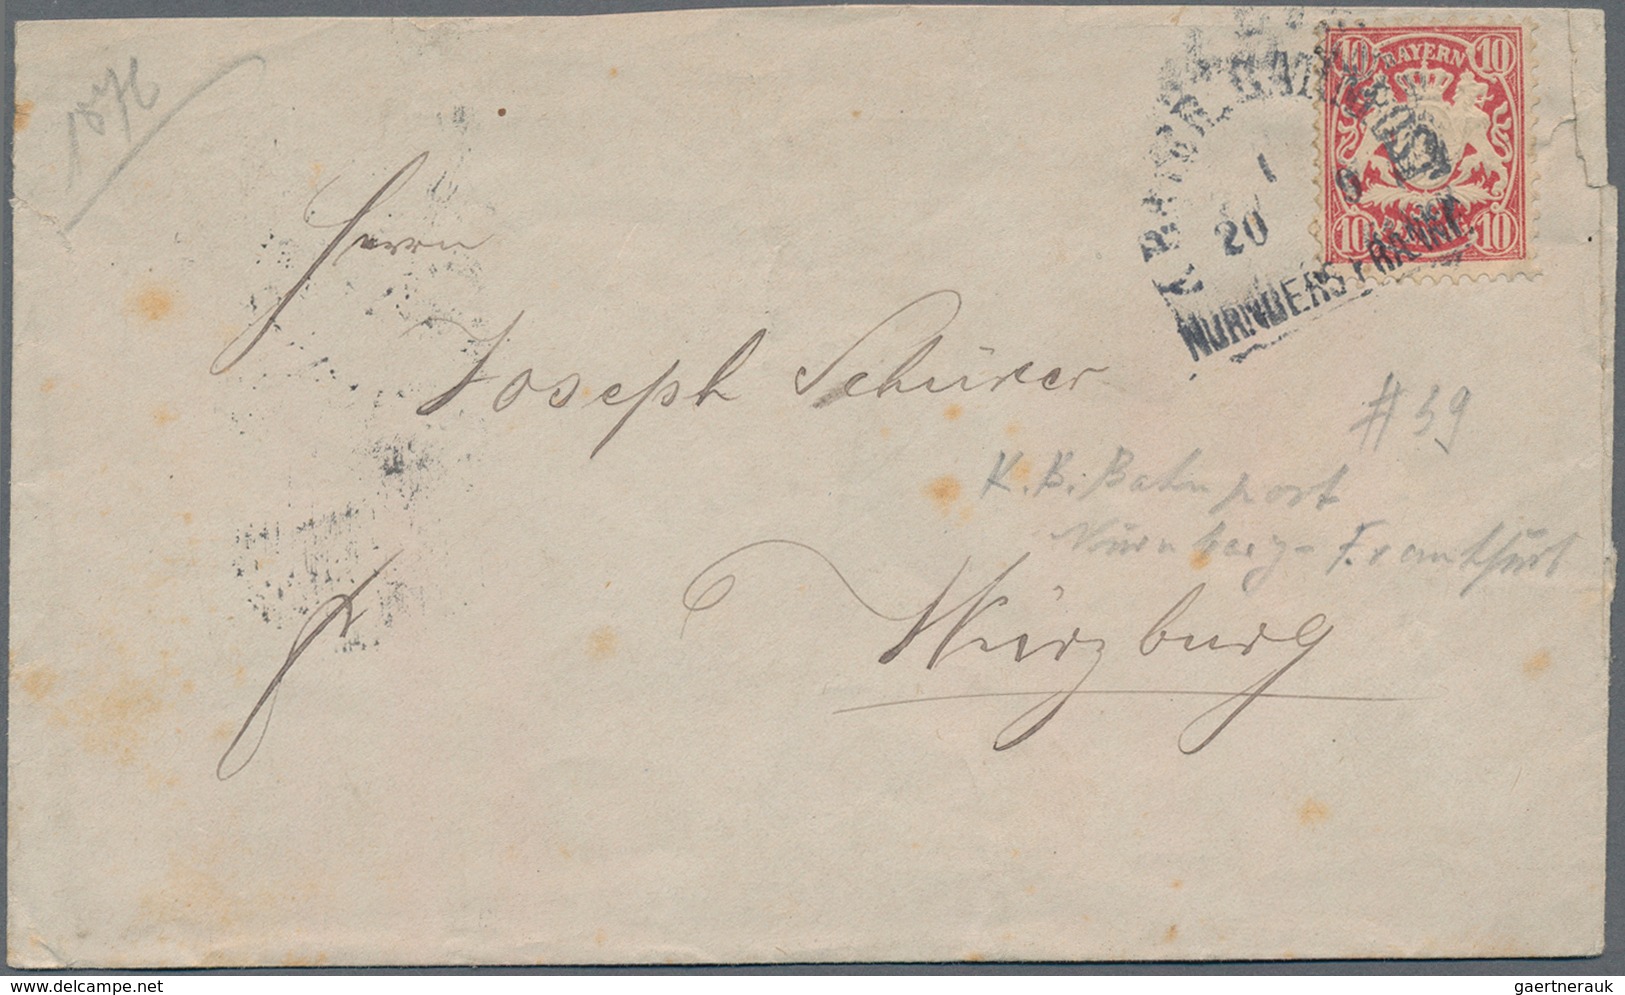 1876
10 BAYERN 10
10 10
K. BAYER. BAHNPOST
1
20 9
NÜRNBERG FRANKF.
Herrn
Joseph Schürer
#39
K. B. Bahnpost
Nürnberg - Frankfurt
Würzburg
gaertnerauk